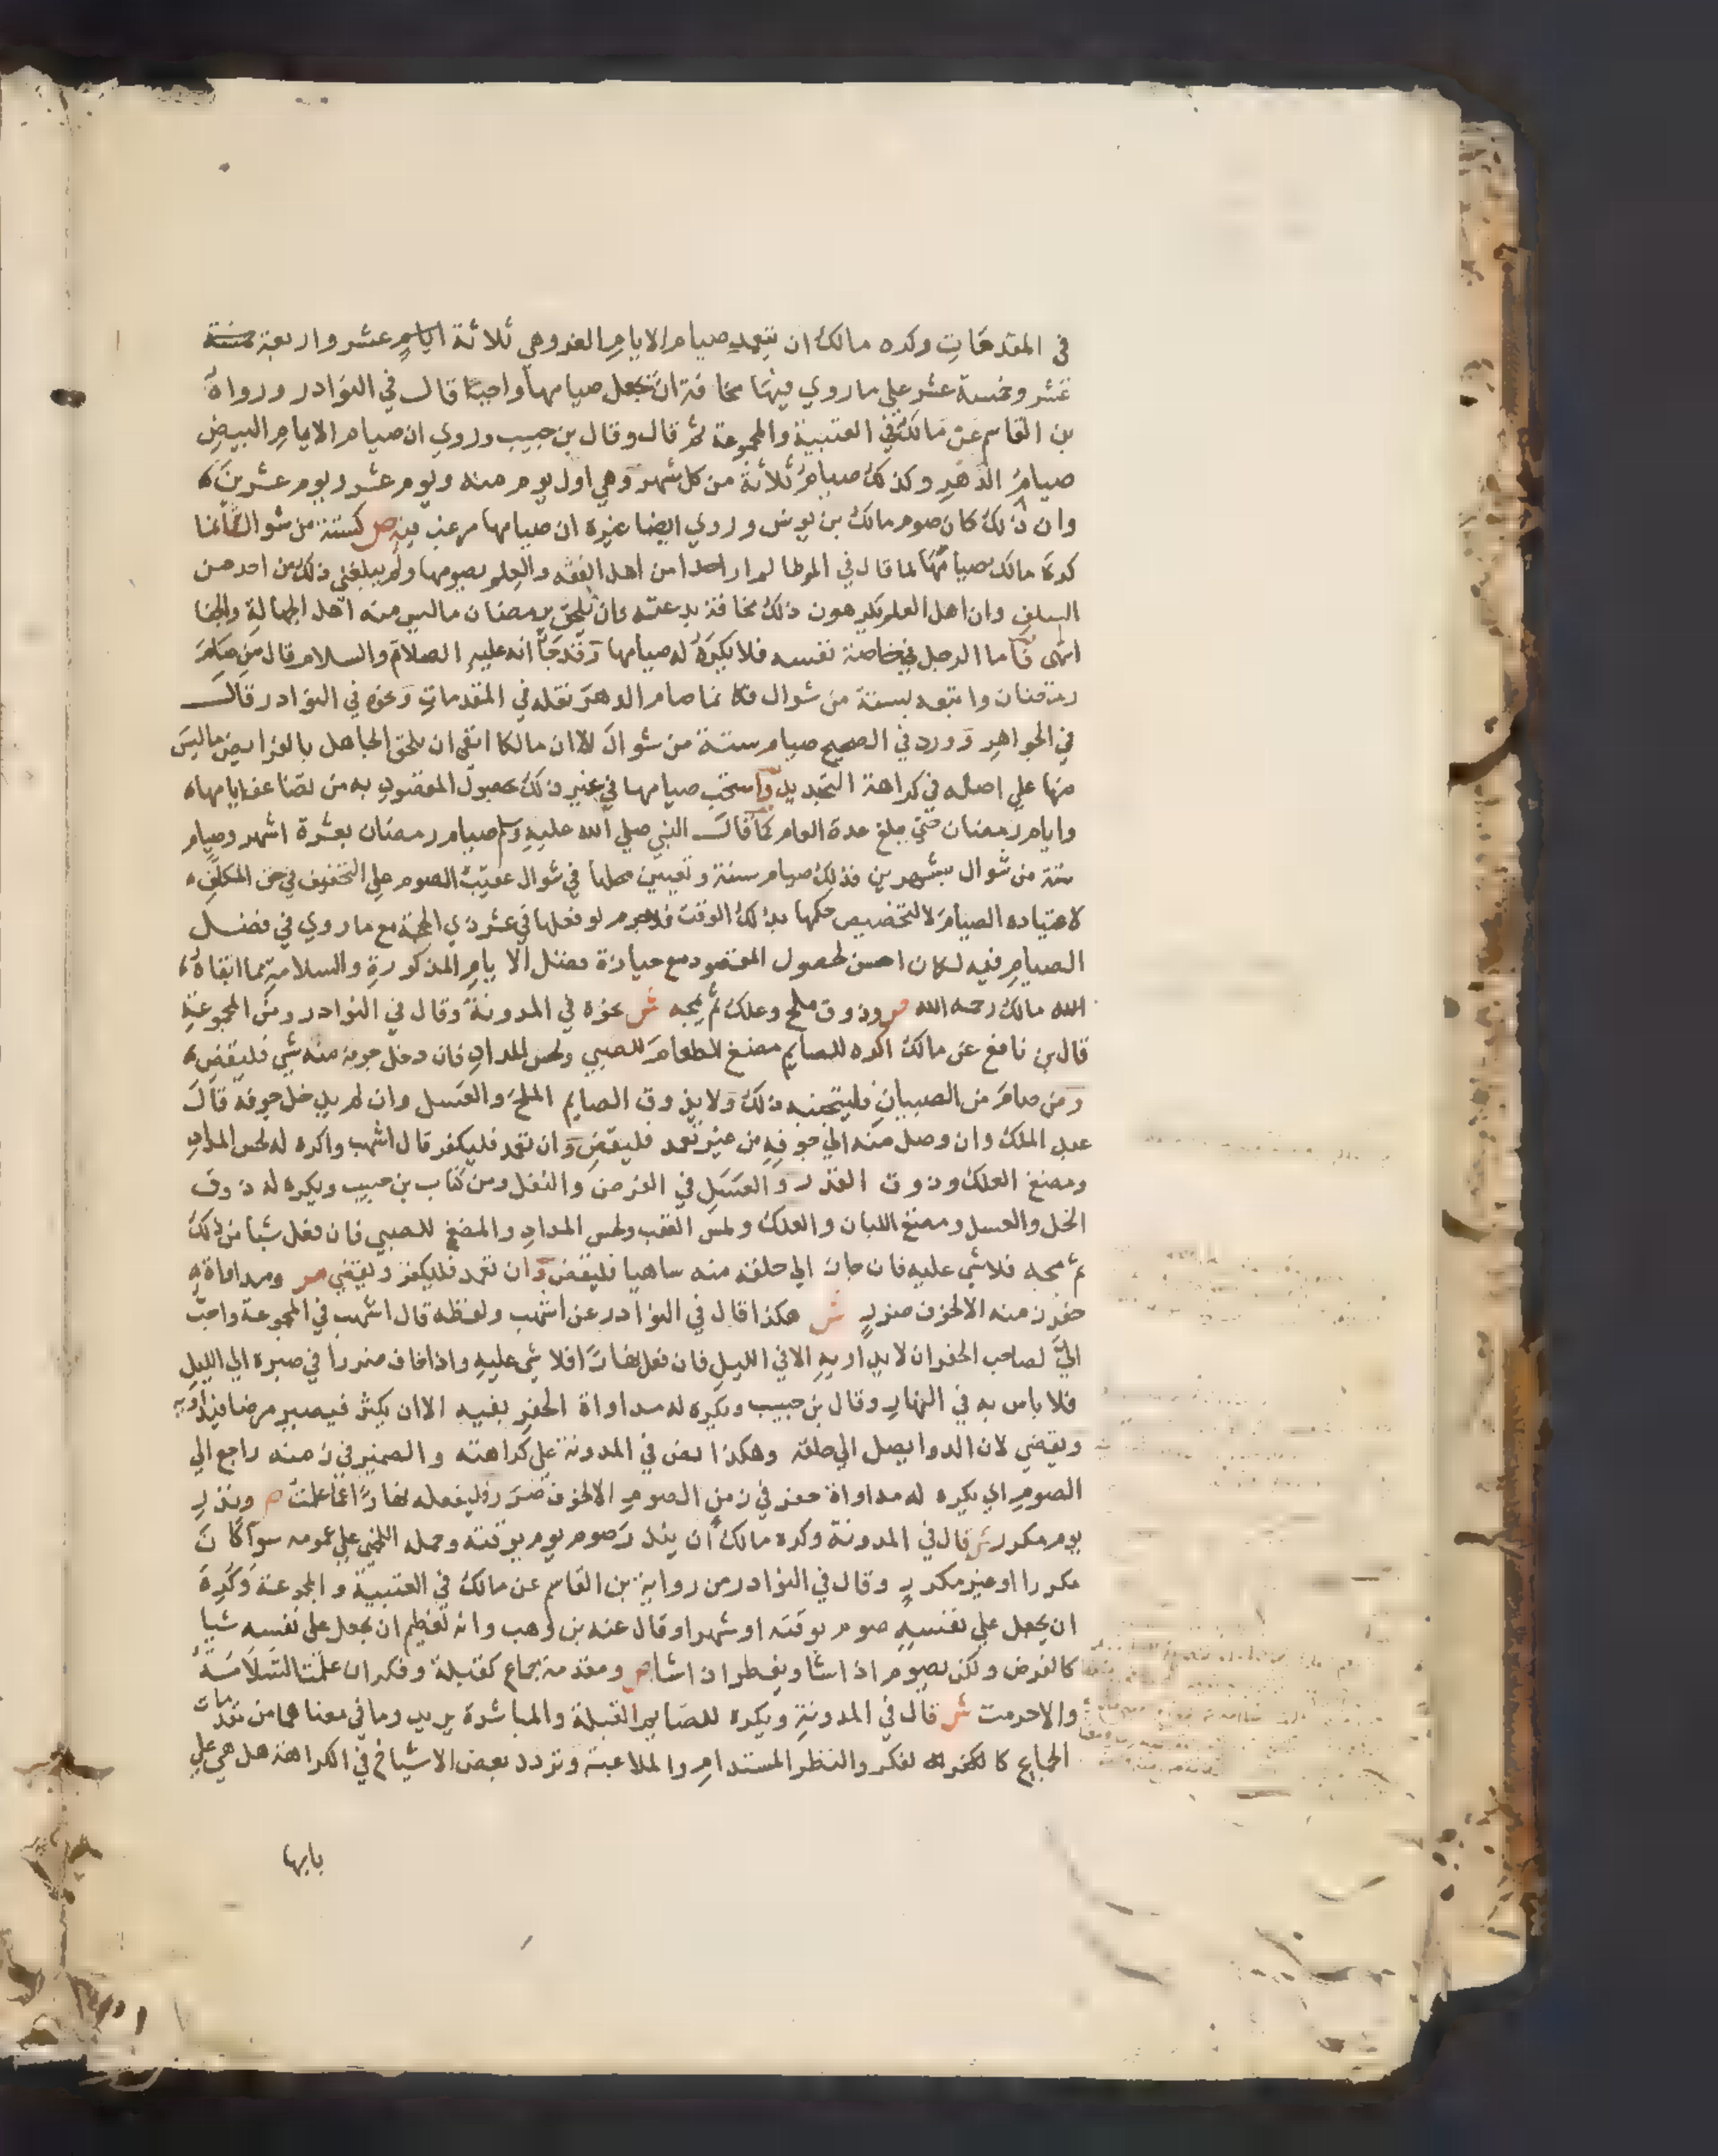 في المقدمات وكره مالك ان يتعمد صيام الايام الغر وهي ثلاثة ايام عشر واربعة
عشر وخمسة عشر علي ما روي فيها مخافة ان تجعل صيامها واجبا قال في النوادر ورواه
بن القاسم عن مالك في العتبية والمجموعة ثم قال وقال بن حبيب وروي ان صيام الايام البيض
صيام الدهر وكذلك صيام ثلاثة من كل شهر وهي اول يوم منه ويوم عشر ويوم عشرين
وان ذلك كان صوم مالك بن يونس وروي ايضا غيره ان صيامها مرغب فيه ص كستة من شوال ش انما
كره مالك صيامها لما قال في الموطا لم ار احدا من اهل الفقه والعلم يصومها ولم يبلغني ذلك عن احد من
السلف وان اهل العلم يكرهون ذلك مخافة بدعته وان يلحق برمضان ما ليس منه اهل الجهالة والجفا
انتهى فاما الرجل في خاصة نفسه فلا يكره له صيامها وقد جا انه عليه الصلاة والسلام قال من صام
رمضان واتبعه بستة من شوال فكانما صام الدهر نقله في المقدمات ونحوه في النوادر قال
في الجواهر وورد في الصحيح صيام ستة من شوال الا ان مالكا اتقى ان يلحق الجاهل بالفرايض ما ليس
منها علي اصله في كراهة التحديد واستحب صيامها في غير ذلك لحصول المقصود به من تضاعف ايامها
وايام رمضان حتي يبلغ عدة العام كما قال النبي صلي الله عليه وسلم صيام رمضان بعشرة اشهر وصيام
ستة من شوال بشهرين فذلك صيام سنة وتعيين محلها في شوال عقيب الصوم علي التخفيف في حق المكلف
لاعتياده الصيام لا لتخصيص حكمها بذلك الوقت فلا جرم لو فعلها في عشر ذي الحجة مع ما روي في فضل
الصيام فيه لكان احسن لحصول المقصود مع حيازة فضل الايام المذكورة والسلامة مما اتقاه
الله مالك رحمه الله ص وذوق ملح وعلك ثم يمجه ش نحوه في المدونة وقال في النوادر ومن المجموعة
قال بن نافع عن مالك اكره للصايم مضغ الطعام للصبي ولحس المداد فان دخل جوفه منه شي فليقض
ومن صام من الصبيان فليتجنبه ذلك ولا يذوق الصايم الملح والعسل وان لم يدخل جوفه قال
عبد الملك وان وصل منه الي جوفه من غير تعمد فليقض وان تعمد فليكفر قال اشهب واكره له لحس المداد
ومضغ العلك وذوق القدر والعسل في الفرض والنفل ومن كتاب بن حبيب ويكره له ذوق
الخل والعسل ومضغ اللبان والعلك ولمس العقب ولحس المداد والمضغ للصبي فان فعل شيا من ذلك
ثم مجه فلا شي عليه فان جاز الي حلقه منه ساهيا فليقض وان تعمد فليكفر وليقضي ص ومداواة
حفر زمنه الا لخوف ضرر ش هكذا قال في النوادر عن اشهب ولفظه قال اشهب في المجموعة واحب
الي لصاحب الحفر ان لا يداويه الا في الليل فان فعل نهارا فلا شي عليه واذا خاف ضررا في صبره الي الليل
فلا باس به في النهار وقال بن حبيب ويكره له مداواة الحفر بفيه الا ان يكثر فيصير مرضا فيداويه
ويقضي لان الدوا يصل الي حلقه وهكذا نص في المدونة علي كراهته والضمير في زمنه راجع الي
الصوم اي يكره له مداواة حفر في زمن الصوم الا لخوف ضرر فليفعله نهارا ص ونذر
يوم مكرر ش قال في المدونة وكره مالك ان ينذر صوم يوم يوقته وحمله اللخمي علي عمومه سوا كان
مكررا او غير مكرر وقال في النوادر من رواية بن القاسم عن مالك في العتبية والمجموعة وكره
ان يجعل علي نفسه صوم يوقته او شهرا وقال عنه بن وهب وانه لعظيم ان يجعل علي نفسه شيا
كالفرض ولكن يصوم اذا شا ويفطر اذا شا ص ومقدمة جماع كقبلة وفكر ان علمت السلامة
والا حرمت ش قال في المدونة ويكره للصايم القبلة والمباشرة يريد وما في معناهما من مقدمات
الجماع كالفكر والنظر المستدام والملاعبة وتردد بعض الاشياخ في الكراهة هل هي علي
بابها